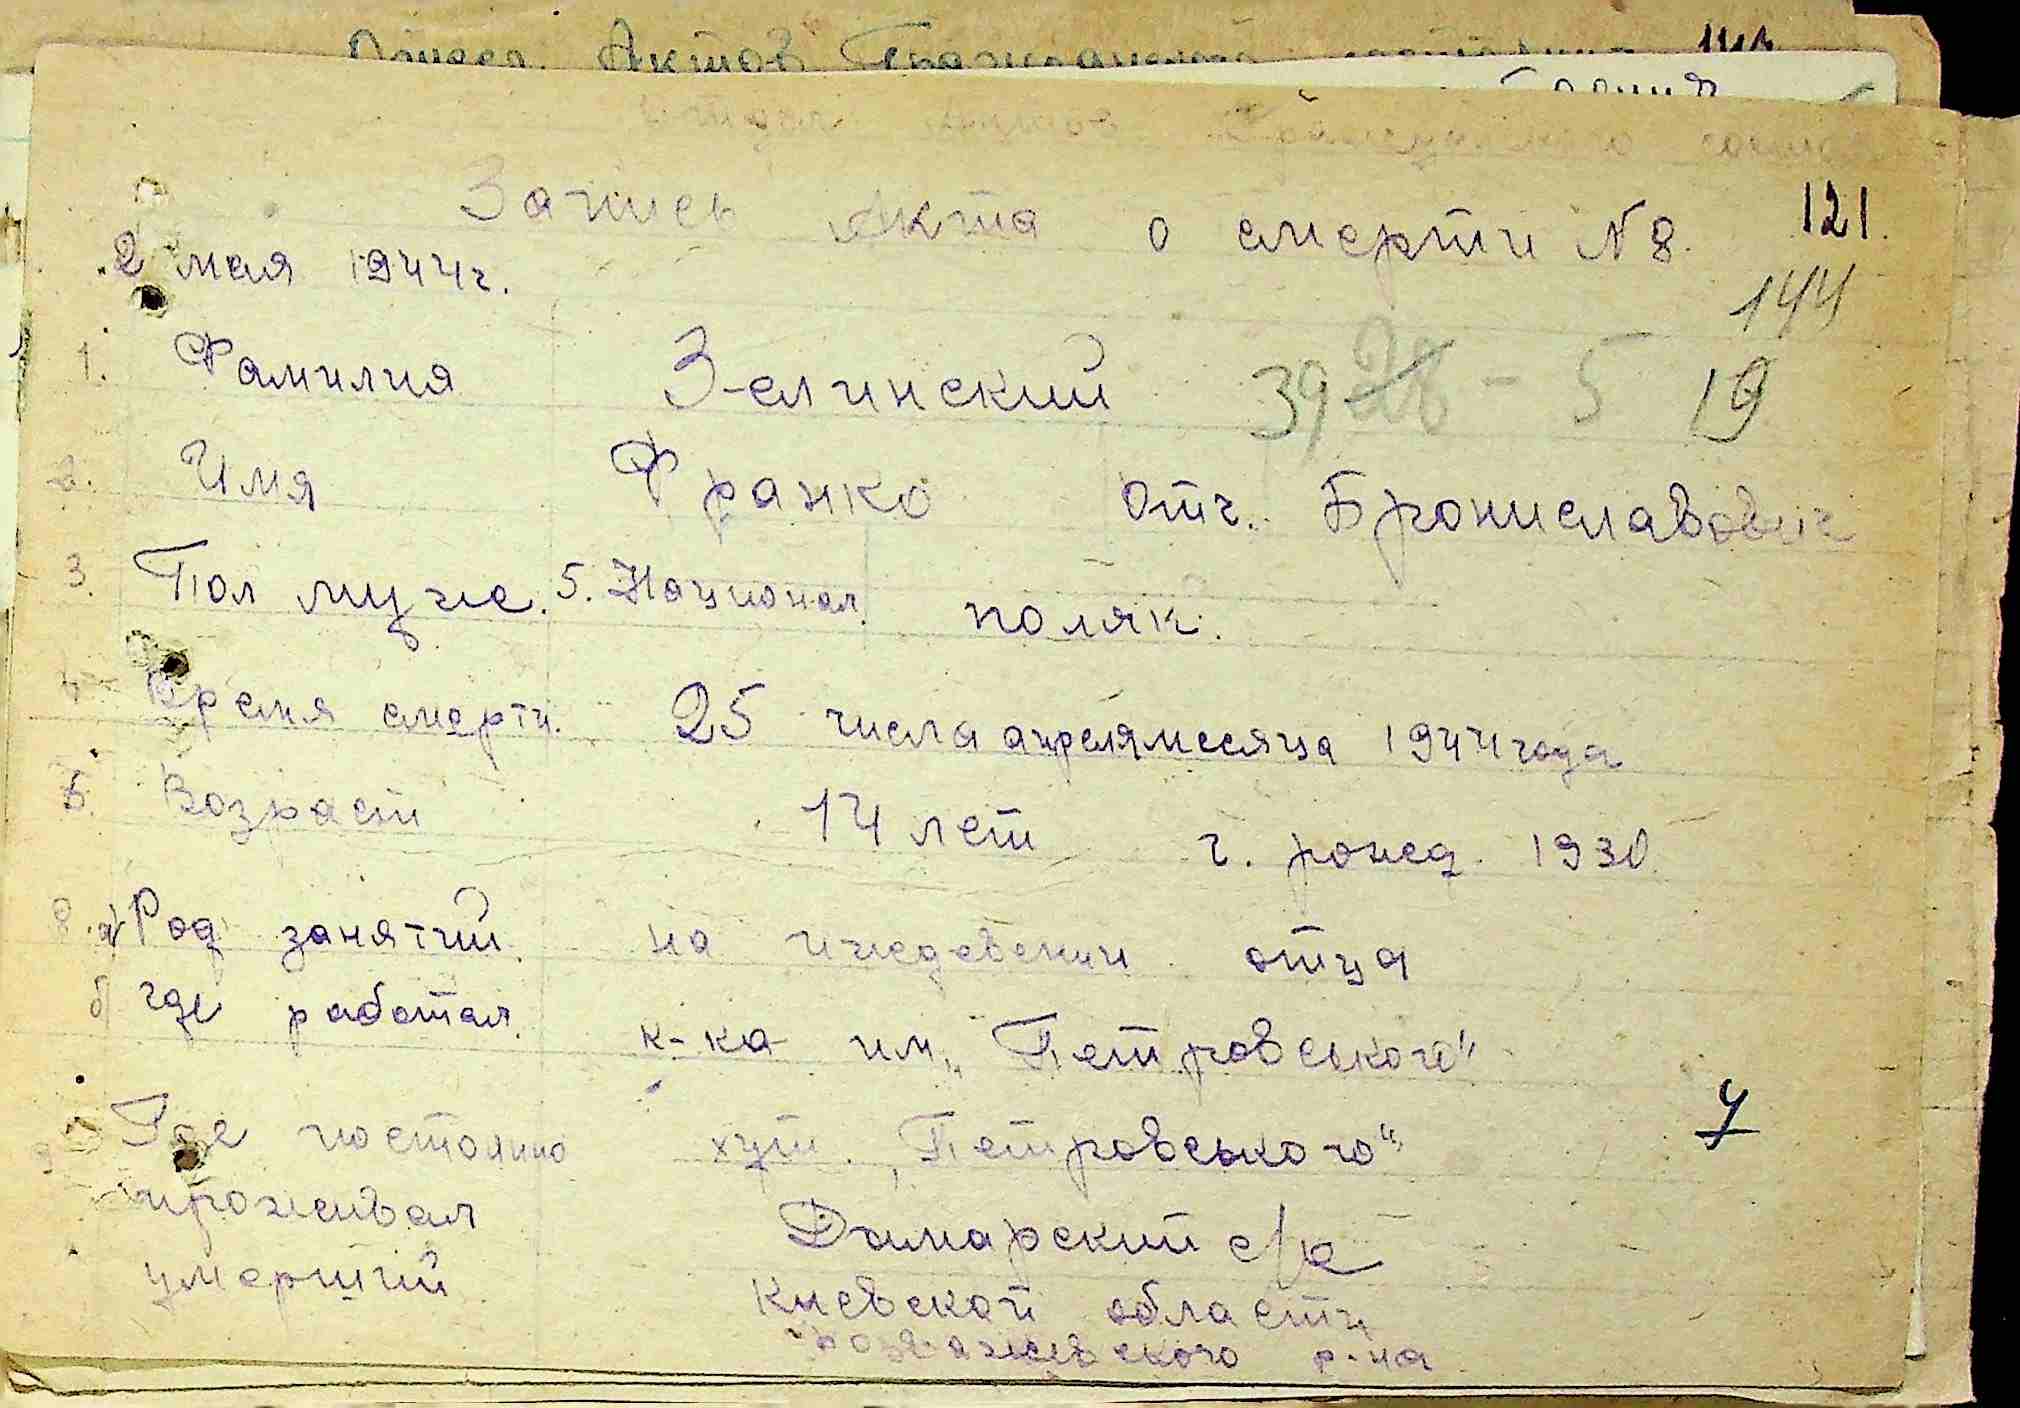 Актов
Запись Акта о смерти N 8. 121.
2 мая 1944 г. 144
1. Фамилия Зелинский 39 28 - 5 19
2. Имя Франко Отч. Брониславович
3. Пол муж. 5. Национал. поляк.
4 Время смерти. 25 числа апреля месяца 1944 года
6. Возраст 14 лет г. рожд. 1930.
8. а) Род занятий. на иждевении отца
б) где работал. к-ка им. „Петровського"
9 Где постоянно хут. „Петровського" 7
проживал Дамарский с/с
умерший Киевской области
Розважевского р-на